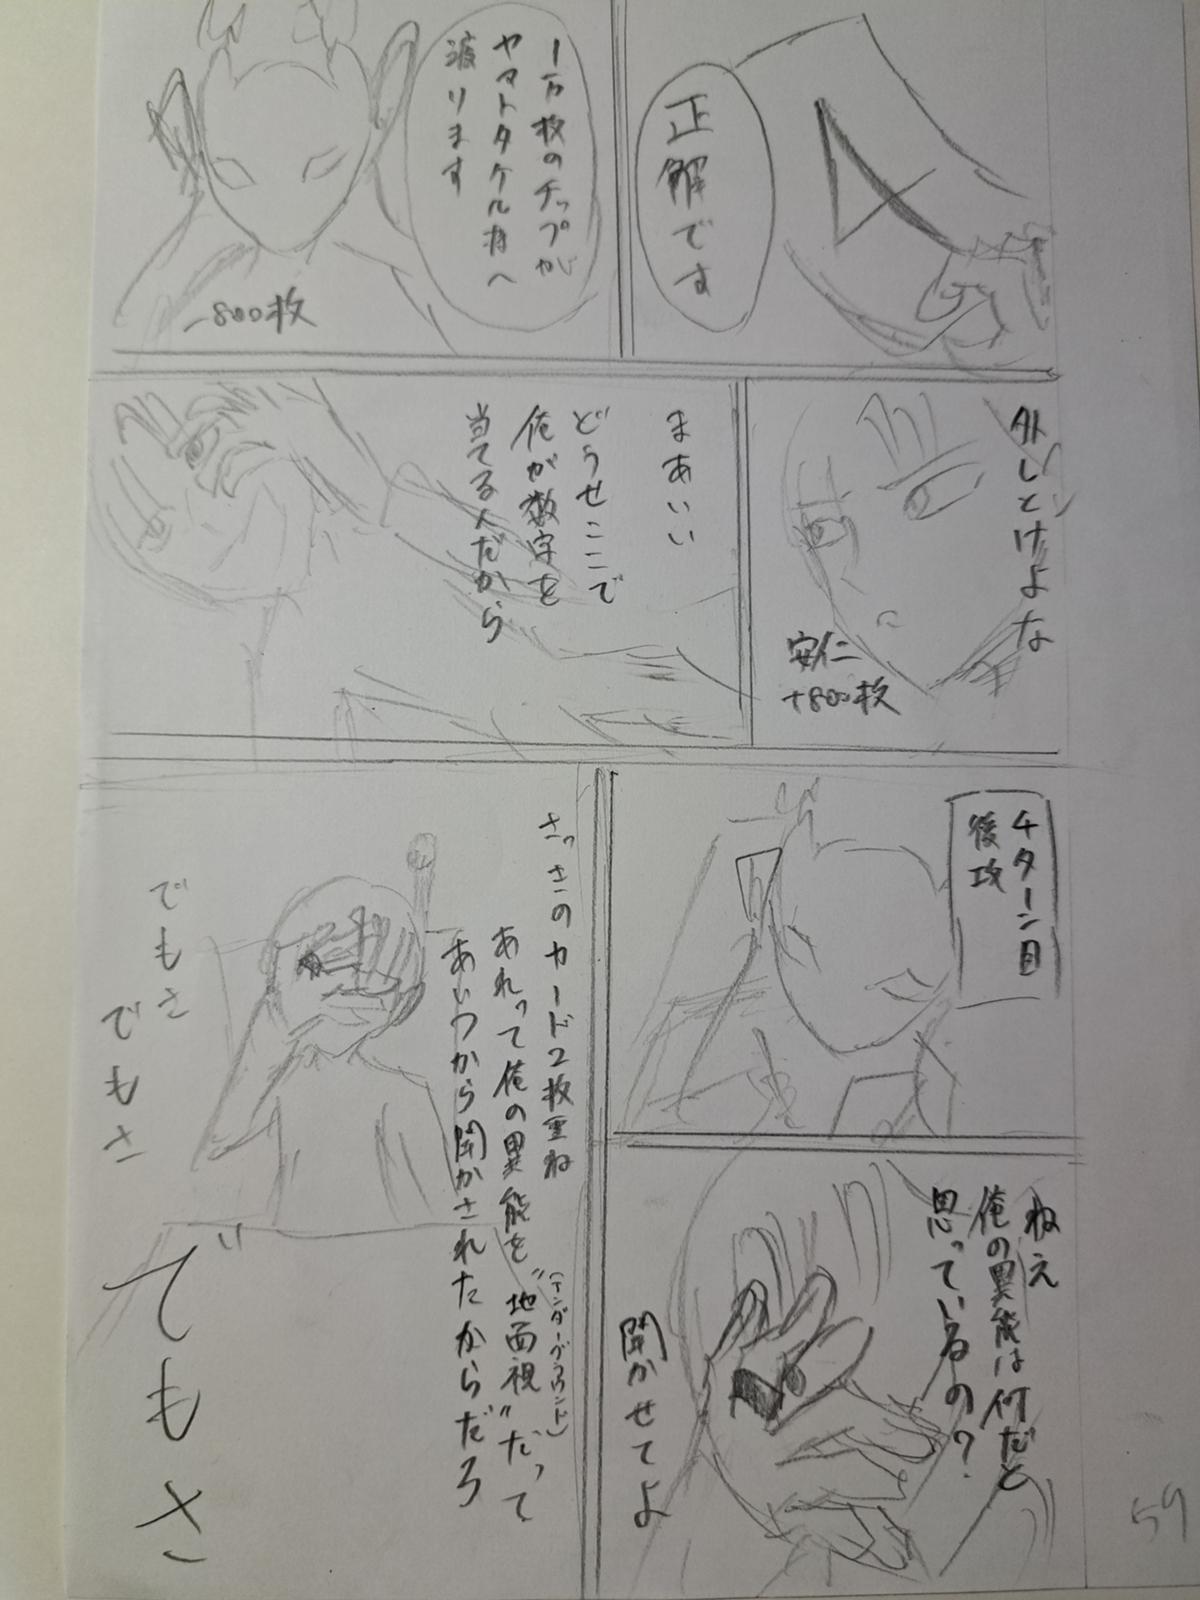 正解です
1万枚のチップが
ヤマトタケル様へ
渡ります
-800枚
外しとけよな
安仁
+800枚
まあいい
どうせここで
俺が数字を
当てるんだから
4ターン目
後攻
ねえ
俺の異能は何だと
思っているの?
聞かせてよ
さっきのカード2枚重ね
あれって俺の異能を"地面視"だって
(アンダーグラウンド)
あいつから聞かされたからだろ
でもさ
でもさ
でもさ
59